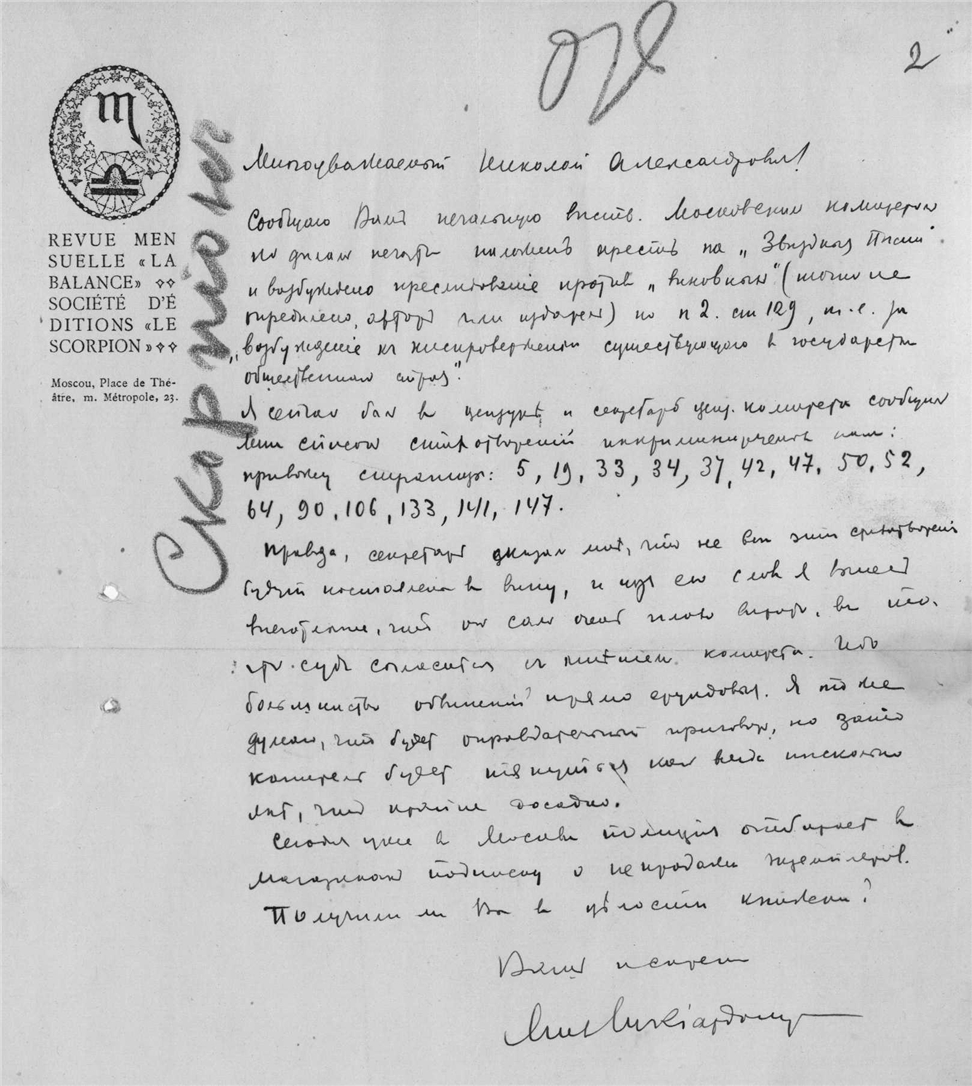 2
Скорпіон
REVUE MEN
SUELLE «LA
BALANCE»
SOCIÉTÉ D'É
DITIONS «LE
SCORPION»
Moscou, Place de Thé-
âtre, m. Métropole, 23.
Многоуважаемый Николай Александрович!
Сообщаю Вамъ печальную вѣсть. Московскимъ комитетом
по дѣлам печати наложенъ арестъ на „Звѣздныя Пѣсни"
и возбуждено преслѣдованіе противъ „виновныхъ" (точно не
опредѣлено, авторъ или издатель) по п 2. ст 129, т.-е. за
„возбужденіе къ ниспроверженію существующаго в государствѣ
общественнаго строя".
Я сейчас был в цензурѣ и секретарь ценз. комитета сообщил
мнѣ список стихотвореній инкриминируемых нам:
привожу страницы: 5, 19, 33, 34, 37, 42, 47, 50, 52,
64, 90, 106, 133, 141, 147.
Правда, секретарь сказал мнѣ, что не всѣ эти стихотворенія
будут поставлены в вину, и изъ его слов я вынес
впечатлѣніе, что он сам очень плохо вѣрит в то,
что судъ согласится съ мнѣніем комитета. Ибо
большинство обвиненій прямо ерундовыя. Я тоже
думаю, что будет оправдательный приговор, но зато
комитет будет тянуться как всегда нѣсколько
лѣт, что крайне досадно.
Сегодня уже в Москвѣ полиція отбирает в
магазинах подписку о непродажѣ экземпляров.
Получили ли Вы в цѣлости книжки?
Ваш искренне